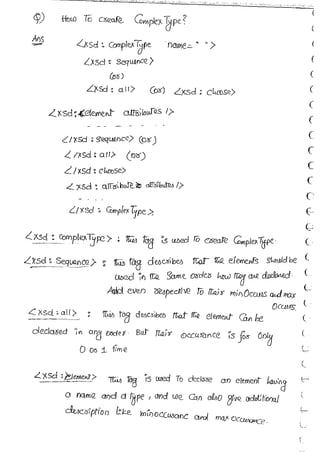 Q) How To create Complex Type?
Ans
<xsd : ComplexType name=" ">
<xsd : Sequence>
(or)
<xsd : all> (or) <xsd : choose>
<xsd : element attributes />
- - - - - - - -
</xsd : sequence> (or)
</xsd : all> (or)
</xsd : choose>
<xsd : attribute attributes />
- - - -
</xsd : Complex Type>
<xsd : ComplexType> : This tag is used To create Complex Type
<xsd : Sequence> : This tag describes That The elements should be
used in The Same order how They are declared
And even respective To Their minOccurs and max
Occurs
<xsd : all> : This tag describes That the element Can be
declared in any order. But Their occurance is for Only
0 or 1 Time
<xsd : element> This Tag is used To declare an element having
a name and a Type, and we Can also give additional
description like minoccurance and max occurance.